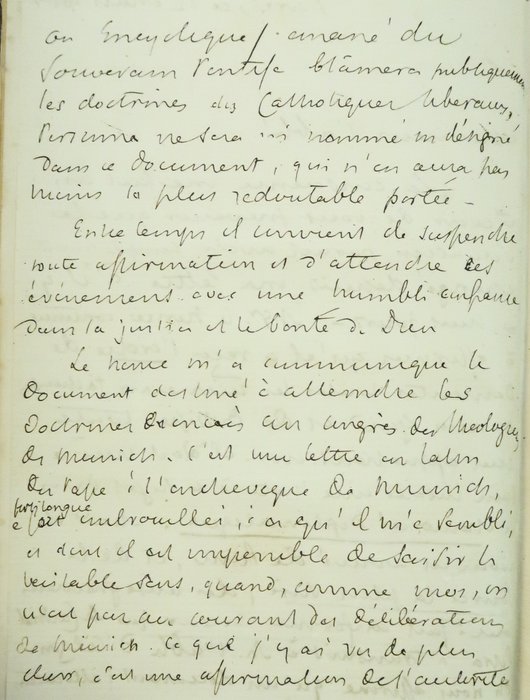 ou Encyclique, émané du
Souverain Pontife blâmera publiquement
les doctrines des Catholiques libéraux,
Personne ne sera ni nommé ni désigné
dans ce document, qui n'en aura pas
moins la plus redoutable portée -
Entre temps il convient de suspendre
toute affirmation et d'attendre les
événements avec une humble confiance
dans la justice et la bonté de Dieu
Le nonce m'a communiqué le
document destiné à atteindre les
doctrines énoncées au congrès des théologiens
de Munich. C'est une lettre en latin
du Pape à l'archevêque de Munich,
fort longue
et fort embrouillée, à ce qu'il m'a semblé,
et dont il est impossible de saisir le
véritable sens, quand, comme moi, on
n'est pas au courant des délibérations
de Munich. Ce que j'y ai vu de plus
clair, c'est une affirmation de l'autorité